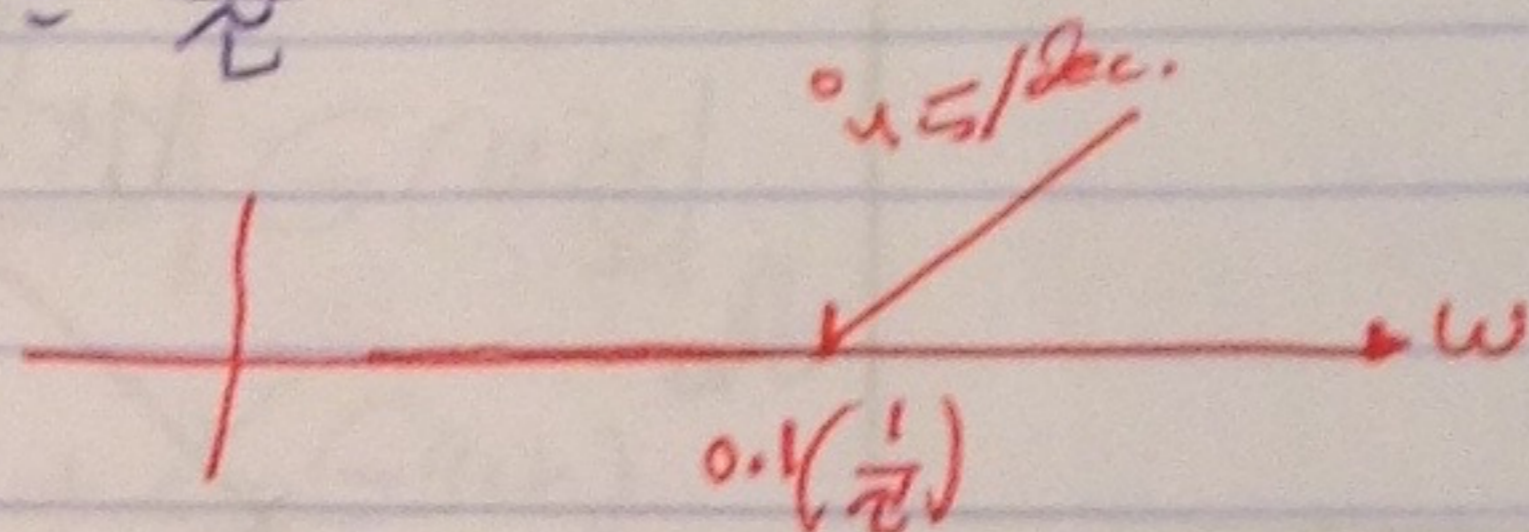 τ
°45/Dec.
ω
0.1(1/τ)